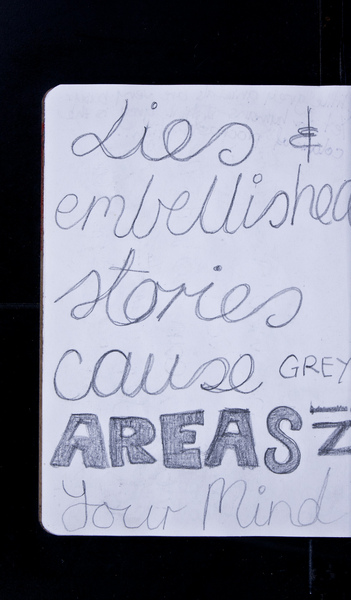 Lies &
embellished
stories
cause GREY
AREAS
Your Mind